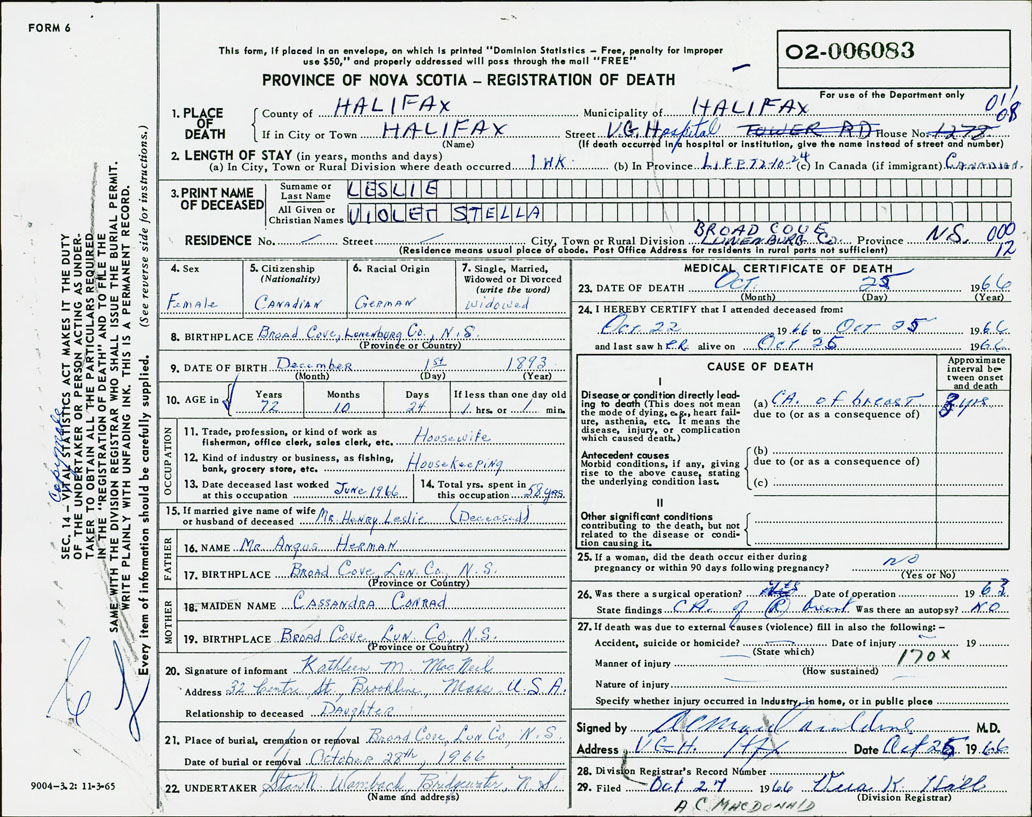 FORM 6
This form, if placed in an envelope, on which is printed "Dominion Statistics – Free, penalty for improper
use $50," and properly addressed will pass through the mail "FREE"
PROVINCE OF NOVA SCOTIA – REGISTRATION OF DEATH
O2-006083
For use of the Department only
011
08
1. PLACE OF DEATH
County of HALIFAX Municipality of HALIFAX
If in City or Town HALIFAX Street V.G. Hospital TOWER RD House No. 1278
(Name) (If death occurred in a hospital or institution, give the name instead of street and number)
2. LENGTH OF STAY (in years, months and days)
(a) In City, Town or Rural Division where death occurred 1 WK. (b) In Province LIFE 72-10-24 (c) In Canada (if immigrant) Canadian
3. PRINT NAME OF DECEASED
Surname or Last Name LESLIE
All Given or Christian Names VIOLET STELLA
RESIDENCE No. Street City, Town or Rural Division BROAD COVE LUNENBURG Co. Province N.S. 000
12
(Residence means usual place of abode. Post Office Address for residents in rural parts not sufficient)
4. Sex
Female
5. Citizenship (Nationality)
CANADIAN
6. Racial Origin
GERMAN
7. Single, Married, Widowed or Divorced (write the word)
Widowed
8. BIRTHPLACE Broad Cove, Lunenburg Co., N.S.
(Province or Country)
9. DATE OF BIRTH December 1st 1893
(Month) (Day) (Year)
10. AGE in Years Months Days If less than one day old
72 10 24 hrs. or min.
OCCUPATION
11. Trade, profession, or kind of work as fisherman, office clerk, sales clerk, etc. Housewife
12. Kind of industry or business, as fishing, bank, grocery store, etc. Housekeeping
13. Date deceased last worked at this occupation June 1966
14. Total yrs. spent in this occupation 58 yrs.
15. If married give name of wife or husband of deceased Mr. Henry Leslie (Deceased)
FATHER
16. NAME Mr. Angus Herman
17. BIRTHPLACE Broad Cove Lun. Co., N.S.
(Province or Country)
MOTHER
18. MAIDEN NAME Cassandra Conrad
19. BIRTHPLACE Broad Cove, Lun. Co., N.S.
(Province or Country)
20. Signature of informant Kathleen M. MacNeil
Address 32 Centre St., Brookline, Mass. U.S.A.
Relationship to deceased Daughter
21. Place of burial, cremation or removal Broad Cove, Lun Co., N.S.
Date of burial or removal October 28th, 1966
22. UNDERTAKER Stan N. Wambach Bridgewater, N.S.
(Name and address)
MEDICAL CERTIFICATE OF DEATH
23. DATE OF DEATH Oct. 25 1966
(Month) (Day) (Year)
24. I HEREBY CERTIFY that I attended deceased from:
Oct 22 1966 to Oct 25 1966
and last saw her alive on Oct 25 1966
CAUSE OF DEATH
Approximate interval between onset and death
I
Disease or condition directly leading to death (This does not mean the mode of dying, e.g., heart failure, asthenia, etc. It means the disease, injury, or complication which caused death.)
(a) CA. of breast 3 yrs
due to (or as a consequence of)
Antecedent causes
Morbid conditions, if any, giving rise to the above cause, stating the underlying condition last.
(b)
due to (or as a consequence of)
(c)
II
Other significant conditions
contributing to the death, but not related to the disease or condition causing it.
25. If a woman, did the death occur either during
pregnancy or within 90 days following pregnancy? NO
(Yes or No)
26. Was there a surgical operation? Yes Date of operation 1963
State findings CA. of (R) breast Was there an autopsy? NO
27. If death was due to external causes (violence) fill in also the following: –
Accident, suicide or homicide? Date of injury 19
(State which)
Manner of injury 170X
(How sustained)
Nature of injury
Specify whether injury occurred in Industry, in home, or in public place
Signed by M.D.
Address V.G.H. Hfx Date Oct 25 1966
28. Division Registrar's Record Number
29. Filed Oct 27 1966 Vera K. Hall
(Division Registrar)
A.C. MACDONALD
SEC. 14 – VITAL STATISTICS ACT MAKES IT THE DUTY
OF THE UNDERTAKER OR PERSON ACTING AS UNDER-
TAKER TO OBTAIN ALL THE PARTICULARS REQUIRED
IN THE "REGISTRATION OF DEATH" AND TO FILE THE
SAME WITH THE DIVISION REGISTRAR WHO SHALL ISSUE THE BURIAL PERMIT.
WRITE PLAINLY WITH UNFADING INK. THIS IS A PERMANENT RECORD.
Every item of information should be carefully supplied. (See reverse side for instructions.)
9004-3.2: 11-3-65